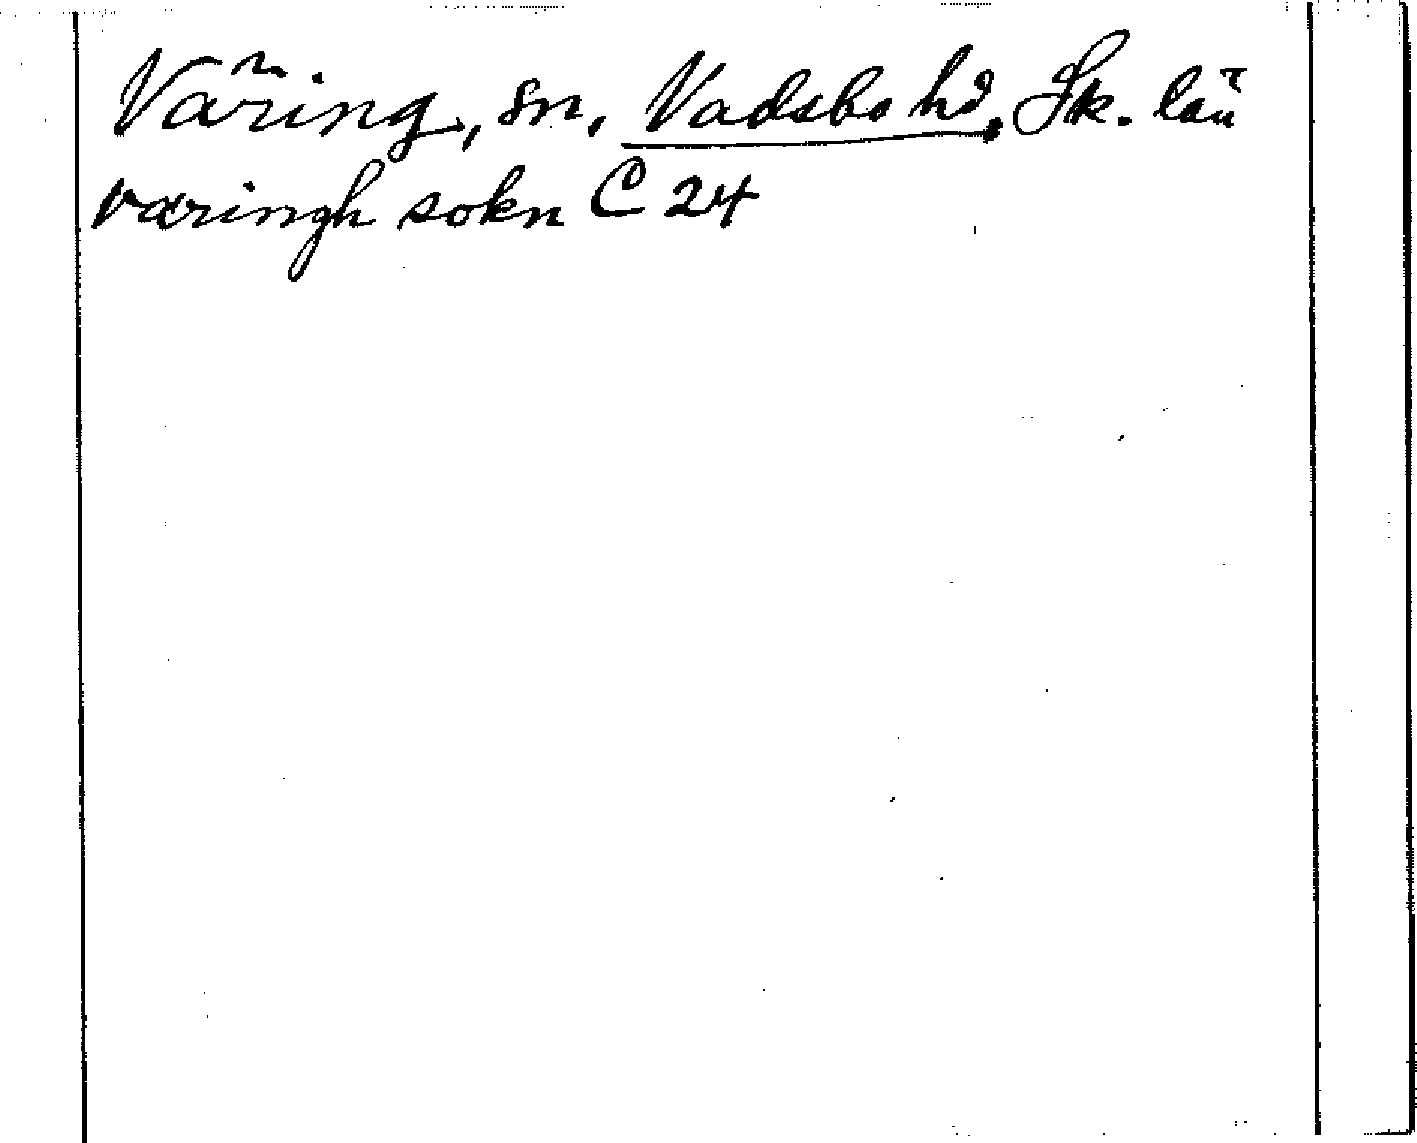 Väring, sn, Vadsbo hd, Sk. län
væringh sokn C 24